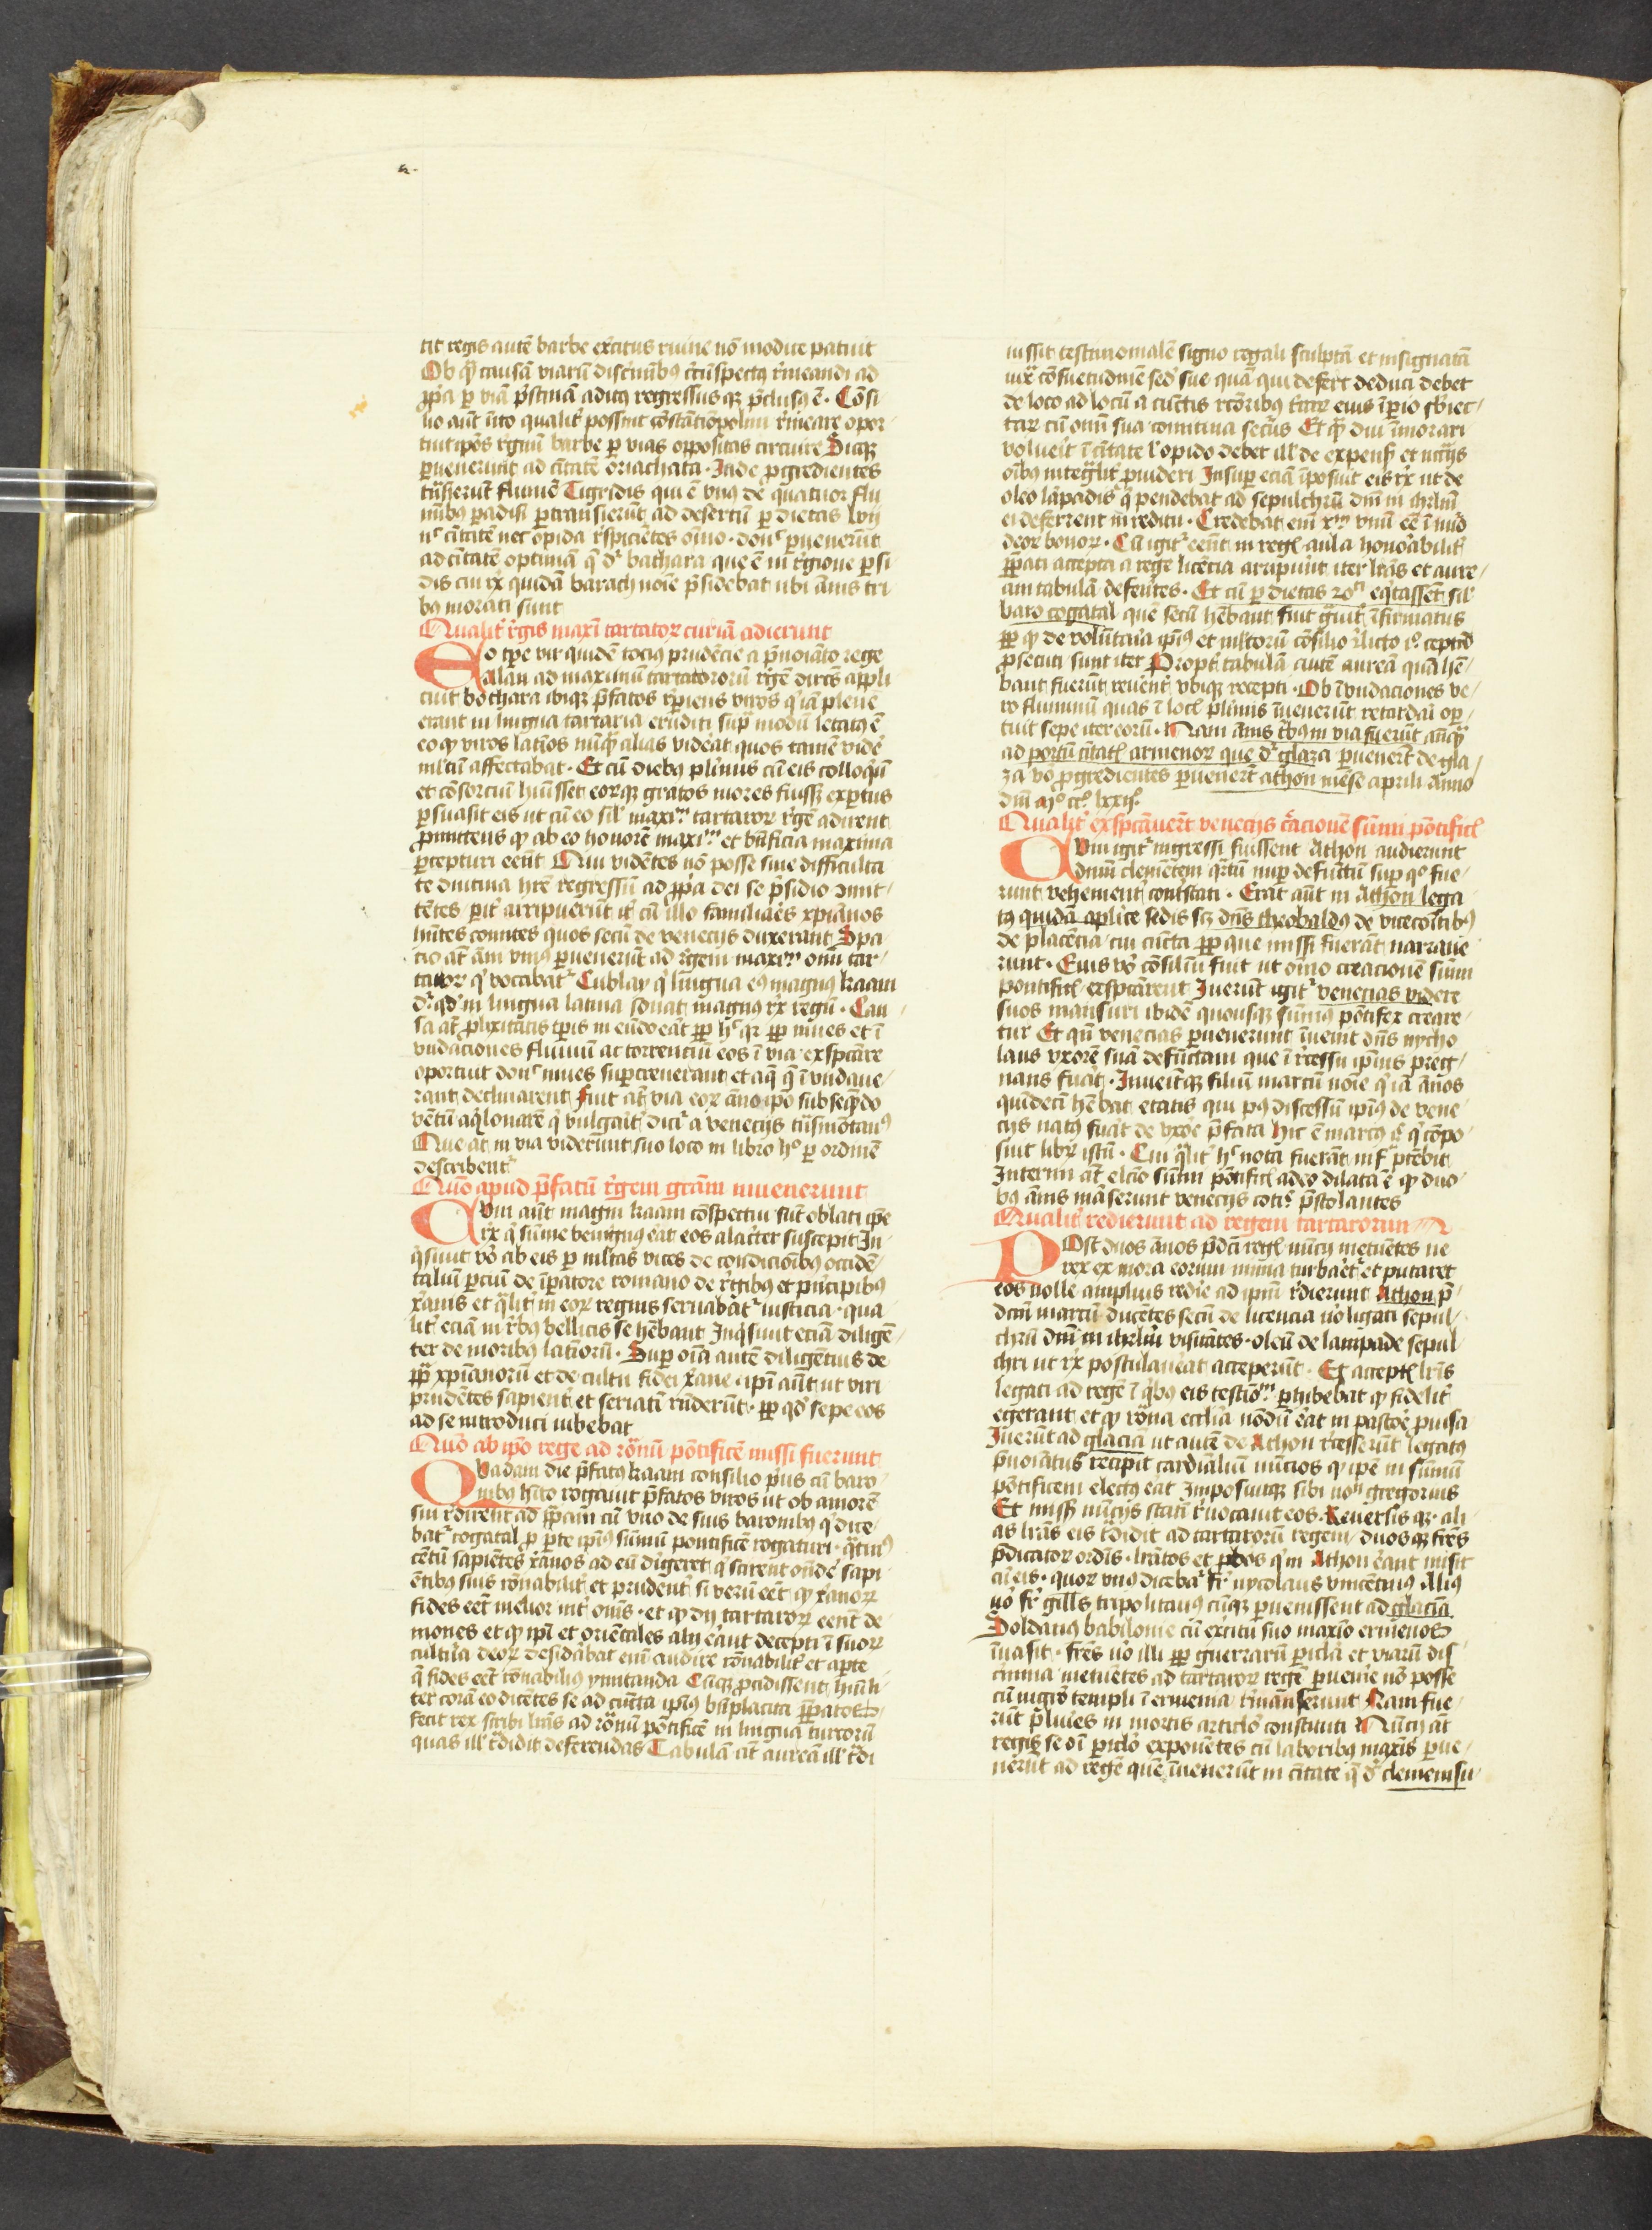 tit regis autē barbe excitus ruine nō modice patuit
Ob qḋ causā viarū discrīib᷒ cūspectꝯ rīneandi ad
ꝓpͥa ꝑ viā pͥstinā aditꝯ regressusqꝫ pͥclusꝯ ē. Cōsi
lio aūt īito qualitˢ possint cōstātīopolim rīneare opor
tuit ipōs rͥgnū barbe ꝑ vias oppositas circuire Sicqꝫ
ꝑuenerunt ad ciͥtatē oriachata. Inde ꝓgredientes
tͣsierūt fluuiē Tigridis qui ē vnꝯ de quatuor flu
minibꝯ paradisi ꝑtransierūt ad desertū ꝑ dietas xvij
nͨ ciͥtatē nec opida rͥspicientes oīno. donͨ ꝑuenerūt
ad ciͥtatē optimā q̄ dͬ bathara que ē in rͥgione ꝑsi
dis cui rͥx quidā barach noīe pͥsidebat ubi ānis tri
bꝯ morati sunt
Qualitˢ rͥgis maxī tartarorꝫ curiā adierunt
Eo tꝑe vir quidē tociꝯ prudēcie a pͥnoīato rege
Alau ad maximū tartarorū rͥgē dircͣs appli
cuit bothara ibiqꝫ pͥfatos rͥpiens viros qͥ iā plene
erant in lingua tartaria eruditi supͣ modū letatꝯ ē
eo qꝫ viros latīos nūqͣ alias videͣat quos tamē videͬ
ml̄tū affectabat. Et cū diebꝯ plīmis cū eis colloqͥū
et cōsorciū hūisset eorqꝫ gratos mores fuissꝫ exꝑtus
ꝑsuasit eis ut cū eo silˢ maxiͫ tartarorꝫ rͥgē adirent
ꝓmittens qꝫ ab eo honorē maxiͫ et bn̄ficia maxima
ꝑcepturi eēnt Qui vidētes nō posse sine difficulta
te diutina hrē regressū ad ꝓpͥa dei se pͥsidio cōmit-
tētes ꝑitˢ arripuerūt itˢ cū illo familiares xpianos
hn̄tes comites quos secū de venecijs duxerant Spa
cio at̄ āni vniꝯ ꝑuenerūt ad rͥgem maxiͫ oīm tar
tarorꝫ qͥ vocabatͬ Cublay qͥ lingua eꝯ magnꝯ kaam
dͬ qḋ in lingua latina sonat magnꝯ rͥx regū. Cau
sa at̄ ꝓlixitatis tꝑis in eūdo eāt ꝓꝑ hͨ qꝛ ꝓꝑ niues et ī
vndaciones fluuiū ac torrentiū eos ī via exspcāre
oportuit donͨ niues suꝑcreuerant et aq̄ q̄ ī vndaue
rant declinarent fuit at̄ via eorꝫ āno ipō subseq̄do
ventū aqͥlonarē qͥ vulgaritˢ dicͬ a venecijs tͣsmōtanꝯ
Que at̄ in via viderūt suo loco in libro hͦ ꝑ ordinē
describentͬ
Quō apud pͥfatū rͥgem grām inuenerunt
Cum aūt magni kaam cōspectui sūt oblati ipse
rͥx qͥ sūme benignꝯ eāt eos alacriter suscepit In-
qͥsiuit vō ab eis ꝑ ml̄tas vices de condicionibꝯ occidē
taliū ꝑciū de īꝑatore romano de rͥgibꝯ et pͥncipibꝯ
xͥanis et qͣlitˢ in eorꝫ regnis seruabatͬ iusticia. qua
litˢ eciā in rͥbꝯ bellicis se hēbant Inqͥsiuit eciā diligē
ter de moribꝯ latīorū. Super oīa autē diligētius de
ppͣ xpianorū et de cultu fidei xͥane. ipī aūt ut viri
prudētes sapientˢ et seriatī rn̄derūt. ꝓꝑ qḋ sepe eos
ad se introduci iubebat
Quō ab ipō rege ad rōnū pōtificē missi fuerunt
Quadam die pͥfatꝯ kaam consilio pͥus cū baro
nibꝯ hīto rogauit pͥfatos viros ut ob amorē
sui rͥdirent ad pͣpam cū vno de suis baronibꝯ qͥ dice
batͬ cogatal ꝓ ꝑte ipīꝯ sūmū pontificē rogaturi. qͣtinꝯ
cētū sapiētes xͥanos ad eū dͥigeret qͥ scirent on̄deͬ sapi
ētibꝯ suis rōnabilitˢ et prudentˢ si verū eēt qꝫ xͥanorꝫ
fides eēt melior intˢ oīms. et qꝫ dij tartarorꝫ eēnt de
mones et qꝫ ipī et oriētales alij eāt decepti ī suorꝫ
cultura deorꝫ desidāabat eniꝫ audire rōnabilitˢ et aꝑte
q̄ fides eēt rōnabiliꝯ ymitanda Cūqꝫ ꝓcidissent hūili-
ter corā eo dicētes se ad cūcta ipīꝯ bn̄placita pͣpatos
fecit rex scribi lrās ad rōnū pōtificē in lingua turcorū
quas ill' tͣdidit deferendas Tabulā at̄ aureā ill' tͣdi
iussit testimonialē signo regali sculptā et insignatā
iuxͣ cōsuetudinē sed' sue quā qui defert deduci debet
de loco ad locū a cūctis rcōribꝯ terrarꝫ eius īꝑio sbiec-
tarꝫ cū omī sua comitiua secūs Et qͣ diu īmorari
voluerit ī ciͥtate l' opido debet ill' de expens' et ncījs
oībꝯ integrͣlitˢ ꝓuideri Insuꝑ eciā īposuit eis rͥx ut de
oleo lāpadis q̄ pendebat ad sepulchrū dn̄i in ihrlm̄
ei deferrent in reditu. Credebat eīm xͫ vnū eē ī nūo
deorꝫ bonorꝫ. Cū igitͬ eēnt in regͥ aula honorabilitˢ
pͣpati accepta a rege licētia aripiūt iter lrās et aure-
am tabulā defentes. Et cū ꝑ dietas 20ͭⁱ eqͥtassēt sil'
baro cogatal quē secū hēbant fuit grͣuitˢ īfirmatus
ꝓꝑ qḋ de volūtate ipīꝯ et ml̄torū cōsilio rͥlicto iͦ. ceptū
ꝓsecuti sunt iter Proptˢ tabulā autē aureā quā hē-
bant fuerūt reuentˢ vbiqꝫ recepti. Ob īvndaciones ve-
ro fluminū quas ī locͥ plīmis īuenerūt retardai opꝛ-
tuit sepe iter eorū. Nam ānis tͥbꝯ in via fuerūt an̄qͣ
ad portū ciͥtatͥ armenorꝫ que dͬ glaza ꝑuenerūt de gla-
za vō ꝓgredientes ꝑuenerūt athon mēse aprili Anno
dnī mͦ. ccͦ. lxxijͦ.
Qualitˢ exspcāuerūt venecijs cͣcionē sūmi pōtificͥ
Cum igitͬ ingressi fuissent Athon audierunt
dnm clementem qͣrtū nuꝑ defunctū suꝑ qͦ fue-
runt vehementˢ contͥstati. Erat aūt in Athon lega
tꝯ quidā aplīce sedis scꝫ dn̄s theobaldꝯ de vicecōitibꝯ
de placētia cui cūcta ꝓꝑ que missi fuerāt narraue
runt. Euis vō cōsiliū fuit ut oīno creacionē sūmi
pontificͥ exspcārent Iuerūt igitͬ venecias videre
suos mansuri ibidē quousqꝫ sūmꝯ pōtifex creare-
tur Et qn̄ venecias ꝑuenerunt īuenit dn̄s nycho
laus vxorē suā defunctam que ī rͥcessu ipīus preg-
nans fuerat. Inueītqꝫ filiū marcū noīe qͥ iā ānos
quīdecī hēbat etatis qui pꝯ discessū ipīꝯ de vene-
cijs natꝯ fuat de vxoꝛe pͥfata hic ē marcꝯ iͤ qͥ cōpo-
suit librͫ istū. Cui qͣlitˢ hͨ nota fuerāt inf' ptēbit
Interim at̄ elcīo sūmi pōtificͥ adeo dilata ē qꝫ duo-
bꝯ ānis māserunt venecijs cotiͤ pͥstolantes
Qualitˢ redierunt ad regem tartarorum
Post duos ānos pͥdcī regͥ nūcij metuētes ne
rex ex mora eorum nimia turbaretͬ et putaret
eos nolle amplius redire ad ipm̄ rͥdierunt Athon pͥ
dcm̄ marcū ducētes secū de licencia vō legati sepul-
chrū dn̄i in ihrlm̄ visitātes. oleū de lampade sepul
chri ut rͥx postulaueāt acceperūt. Et acceptͥ lrīs
legati ad regē ī qͥbꝯ eis testīoͫ ꝑhibebat qꝫ fidelitˢ
egerant et qꝫ rōna ecclīa nōdū eāt in pastore ꝓuisa
Iuerūt ad glaciā ut autē de Athon rͥcesserūt legatꝯ
pͥnoīatus recipit cardīaliū nūcios qꝫ ipē in sūmū
pōtificem electꝯ eāt Imposuitqꝫ sibi nom̄ gregorius
Et missͥ nūcijs statī rͥuocauit eos. Reuersis qꝫ. ali-
as lrās eis tͣdidit ad tartarorū regem duosqꝫ frēs
pͥdicatorꝫ ordīs. lrātos et pbos qͥ in Athon eāt misit
cū eis. quorꝫ vnꝯ dicebatͬ frͥ nycolaus vincētinꝯ Aliꝯ
vō frͥ gills tripolitanꝯ cūqꝫ ꝑuenissent ad glaciā
Soldanꝯ babilonie cū excitu suo maxīo ermenos
īuasit. frēs vō illi ꝓꝑ guerrarū ꝑicla et viarū dis
crimina metuētes ad tartarorꝫ regē ꝑuenire nō posse
cū mgrͦ templi ī ermenia rͥmanserunt Nam fue-
rūt plīues in mortis articlo constituti Nūcij at̄
regis se oī ꝑiclo exponētes cū laboribꝯ maxīs ꝑue-
nerūt ad regē quē īuenerūt in ciͥtate q̄ dͬ clemenisu